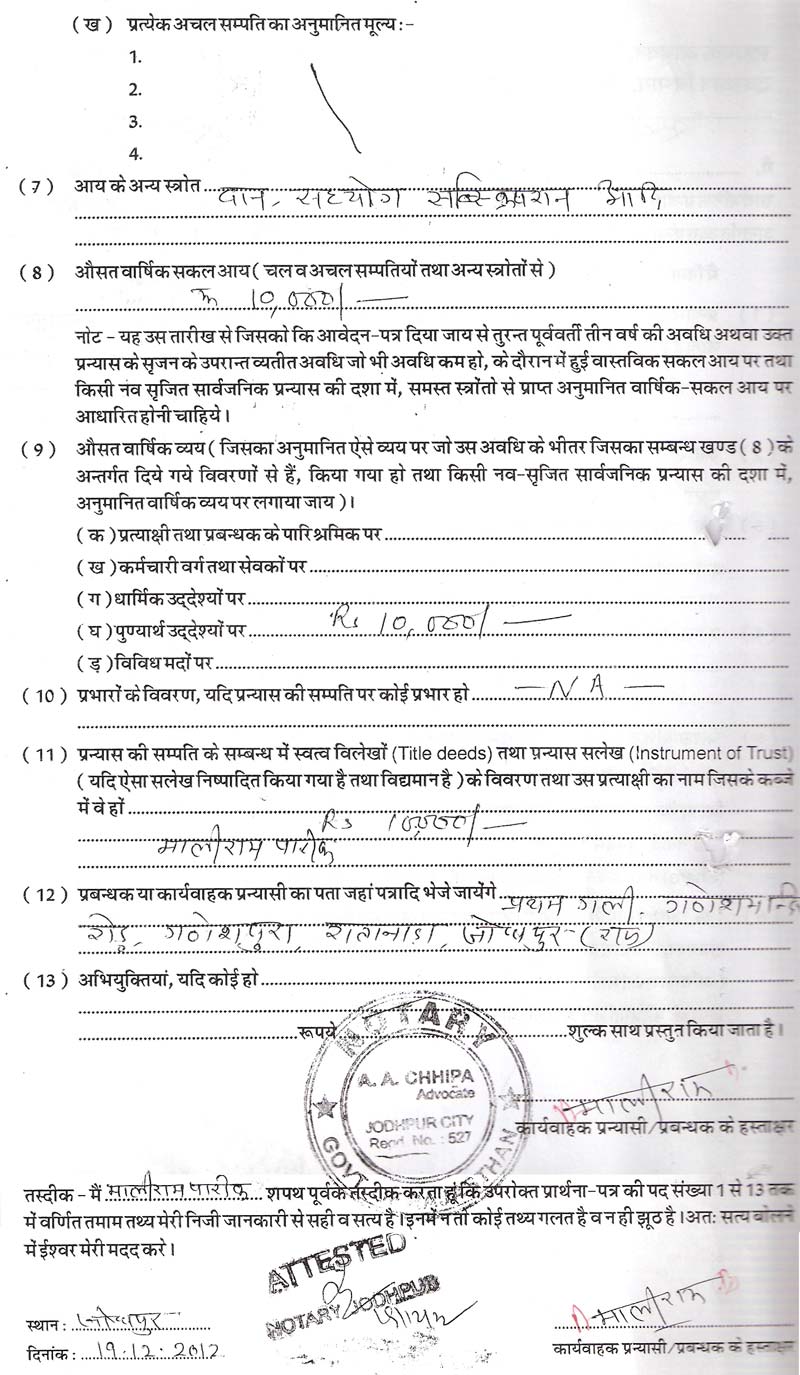 ( ख ) प्रत्येक अचल सम्पति का अनुमानित मूल्य :-
1.
2.
3.
4.
( 7 ) आय के अन्य स्त्रोत दान, सहयोग सब्स्क्रिप्शन आदि
( 8 ) औसत वार्षिक सकल आय ( चल व अचल सम्पतियों तथा अन्य स्त्रोतों से )
10,000/-
नोट - यह उस तारीख से जिसको कि आवेदन-पत्र दिया जाय से तुरन्त पूर्ववर्ती तीन वर्ष की अवधि अथवा उक्त
प्रन्यास के सृजन के उपरान्त व्यतीत अवधि जो भी अवधि कम हो, के दौरान में हुई वास्तविक सकल आय पर तथा
किसी नव सृजित सार्वजनिक प्रन्यास की दशा में, समस्त स्त्रोंतो से प्राप्त अनुमानित वार्षिक-सकल आय पर
आधारित होनी चाहिये।
( 9 ) औसत वार्षिक व्यय ( जिसका अनुमानित ऐसे व्यय पर जो उस अवधि के भीतर जिसका सम्बन्ध खण्ड ( 8 ) के
अन्तर्गत दिये गये विवरणों से हैं, किया गया हो तथा किसी नव-सृजित सार्वजनिक प्रन्यास की दशा में,
अनुमानित वार्षिक व्यय पर लगाया जाय )।
( क ) प्रत्याक्षी तथा प्रबन्धक के पारिश्रमिक पर
( ख ) कर्मचारी वर्ग तथा सेवकों पर
( ग ) धार्मिक उद्‌देश्यों पर
( घ ) पुण्यार्थ उद्‌देश्यों पर Rs 10,000/-
( ड़ ) विविध मदों पर
( 10 ) प्रभारों के विवरण, यदि प्रन्यास की सम्पति पर कोई प्रभार हो - N A -
( 11 ) प्रन्यास की सम्पति के सम्बन्ध में स्वत्व विलेखों (Title deeds) तथा प्रन्यास सलेख (Instrument of Trust)
( यदि ऐसा सलेख निष्पादित किया गया है तथा विद्यमान है ) के विवरण तथा उस प्रत्याक्षी का नाम जिसके कब्जे
में वे हों Rs 10,000/-
मालीराम पारीक
( 12 ) प्रबन्धक या कार्यवाहक प्रन्यासी का पता जहां पत्रादि भेजे जायेंगे प्रथम गली, गणेश मन्दि
रोड़, गणेशपुरा, रातानाडा, जोधपुर-(राज)
( 13 ) अभियुक्तियां, यदि कोई हो
रूपये शुल्क साथ प्रस्तुत किया जाता है।
NOTARY
A. A. CHHIPA
Advocate
JODHPUR CITY
Regd. No. : 527
मालीराम
कार्यवाहक प्रन्यासी/प्रबन्धक के हस्ताक्षर
तस्दीक - मैं मालीराम पारीक शपथ पूर्वक तस्दीक करता हूं कि उपरोक्त प्रार्थना-पत्र की पद संख्या 1 से 13 तक
में वर्णित तमाम तथ्य मेरी निजी जानकारी से सही व सत्य है। इनमें न तो कोई तथ्य गलत है व न ही झूठ है। अतः सत्य बोलने
में ईश्वर मेरी मदद करे।
ATTESTED
NOTARY JODHPUR
स्थान : जोधपुर
मालीराम
दिनांक : 19.12.2012
कार्यवाहक प्रन्यासी/प्रबन्धक के हस्ताक्षर